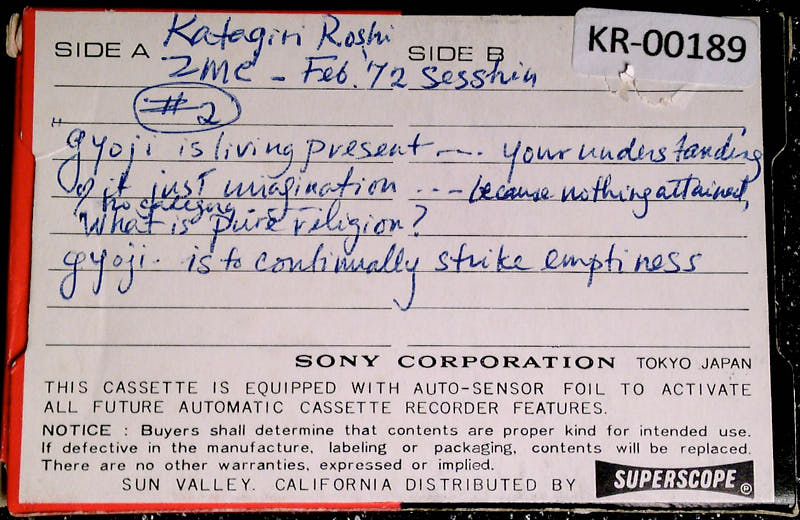 SIDE A Katagiri Roshi SIDE B
KR-00189
ZMC - Feb. '72 sesshin
#2
"gyoji is living present --- your understanding
of it just imagination --- because nothing attained,
no
What is pure religion?
gyoji - is to continually strike emptiness
SONY CORPORATION TOKYO JAPAN
THIS CASSETTE IS EQUIPPED WITH AUTO-SENSOR FOIL TO ACTIVATE
ALL FUTURE AUTOMATIC CASSETTE RECORDER FEATURES.
NOTICE : Buyers shall determine that contents are proper kind for intended use.
If defective in the manufacture, labeling or packaging, contents will be replaced.
There are no other warranties, expressed or implied.
SUN VALLEY. CALIFORNIA DISTRIBUTED BY SUPERSCOPE ®